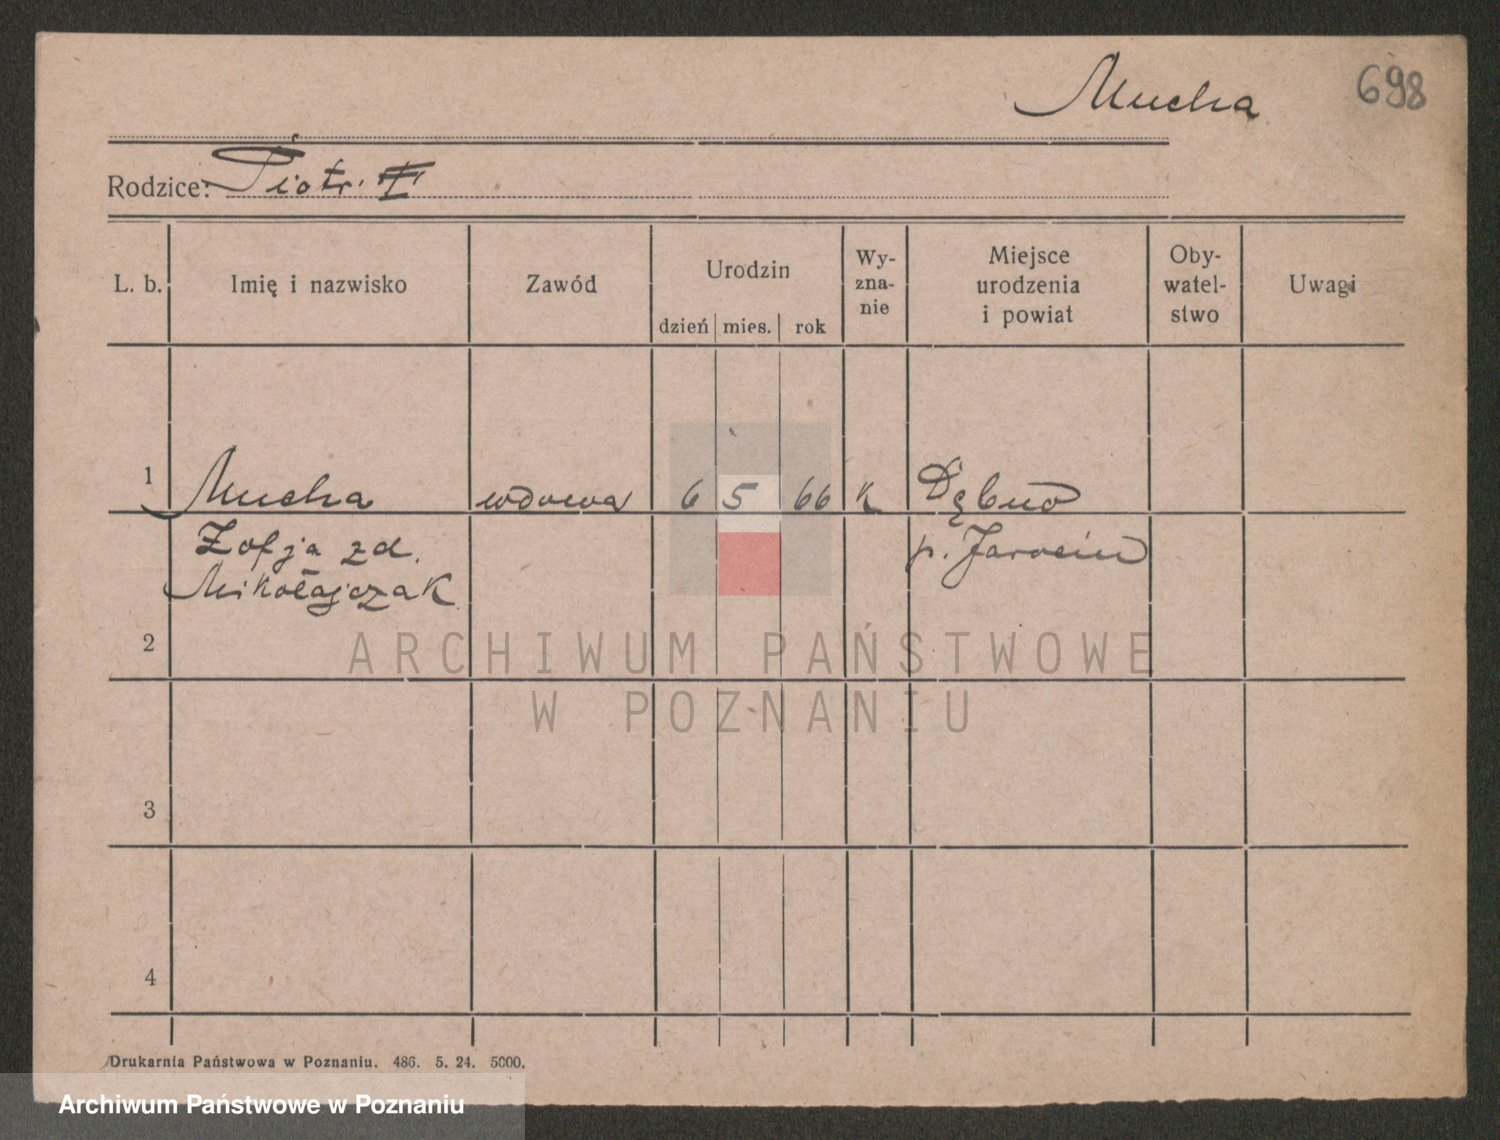 Mucha 698
Rodzice: Piotr. II
L. b. Imię i nazwisko Zawód Urodzin Wy-zna-nie Miejsce urodzenia i powiat Oby-watel-stwo Uwagi
dzień mies. rok
1 Mucha wdowa 6 5 66 k Dębno
Zofja zd. p. Jarocin
Mikołajczak
2
ARCHIWUM PAŃSTWOWE
W POZNANIU
3
4
Drukarnia Państwowa w Poznaniu. 486. 5. 24. 5000.
Archiwum Państwowe w Poznaniu